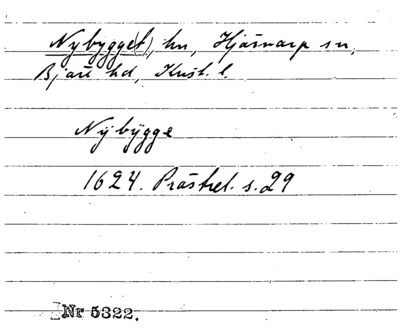 Nybygge(t), hn, Hjärnarp sn,
Bjäre hd, Krist. l.
Nÿbÿgge
1624. Prästrel. s. 29
Nr 5322.